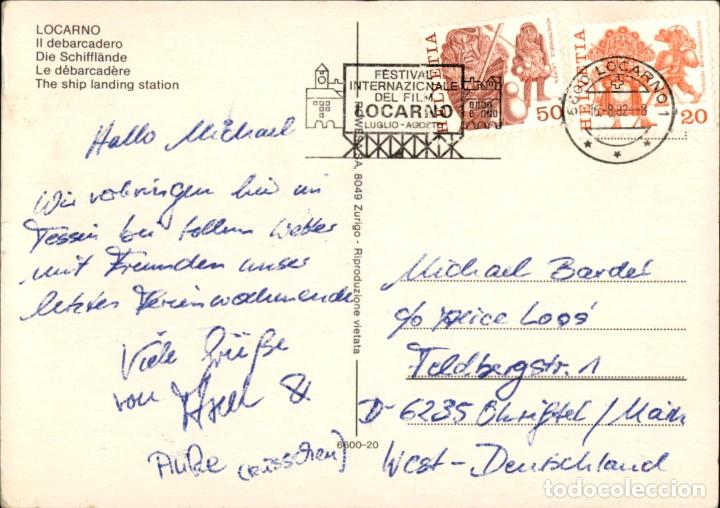 LOCARNO
Il debarcadero
Die Schifflände
Le débarcadère
The ship landing station
FESTIVAL
INTERNAZIONALE
DEL FILM
LOCARNO
LUGLIO-AGOSTO
HELVETIA
50
HELVETIA
20
LOCARNO 1
16.-8.82.-8
8049 Zurigo - Riproduzione vietata
Hallo Michael
Wir verbringen hier im
Tessin bei tollem Wetter
mit Freunden unser
letztes Ferienwochenende
Viele Grüße
von &
Anke
6600-20
Michael Bardet
c/o Alice Loos
Feldbergstr. 1
D-6235 Okriftel/Main
West-Deutschland
todocoleccion.net